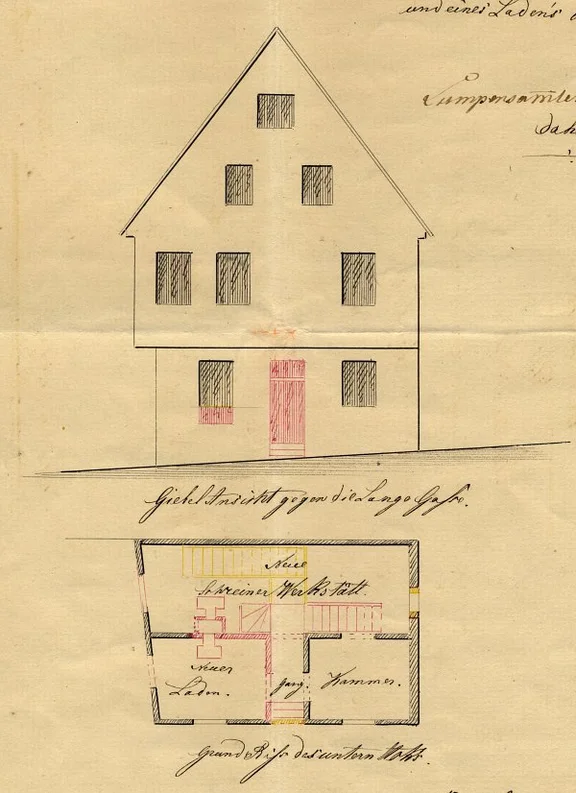 und eines Laden's
Lumpensamler
dah
Giebel Ansicht gegen die Lange Gasse.
Neue
Schreiner Werkstätt.
Neuer
Laden.
Gang.
Kammer.
Grund Riss des untern Stoks.